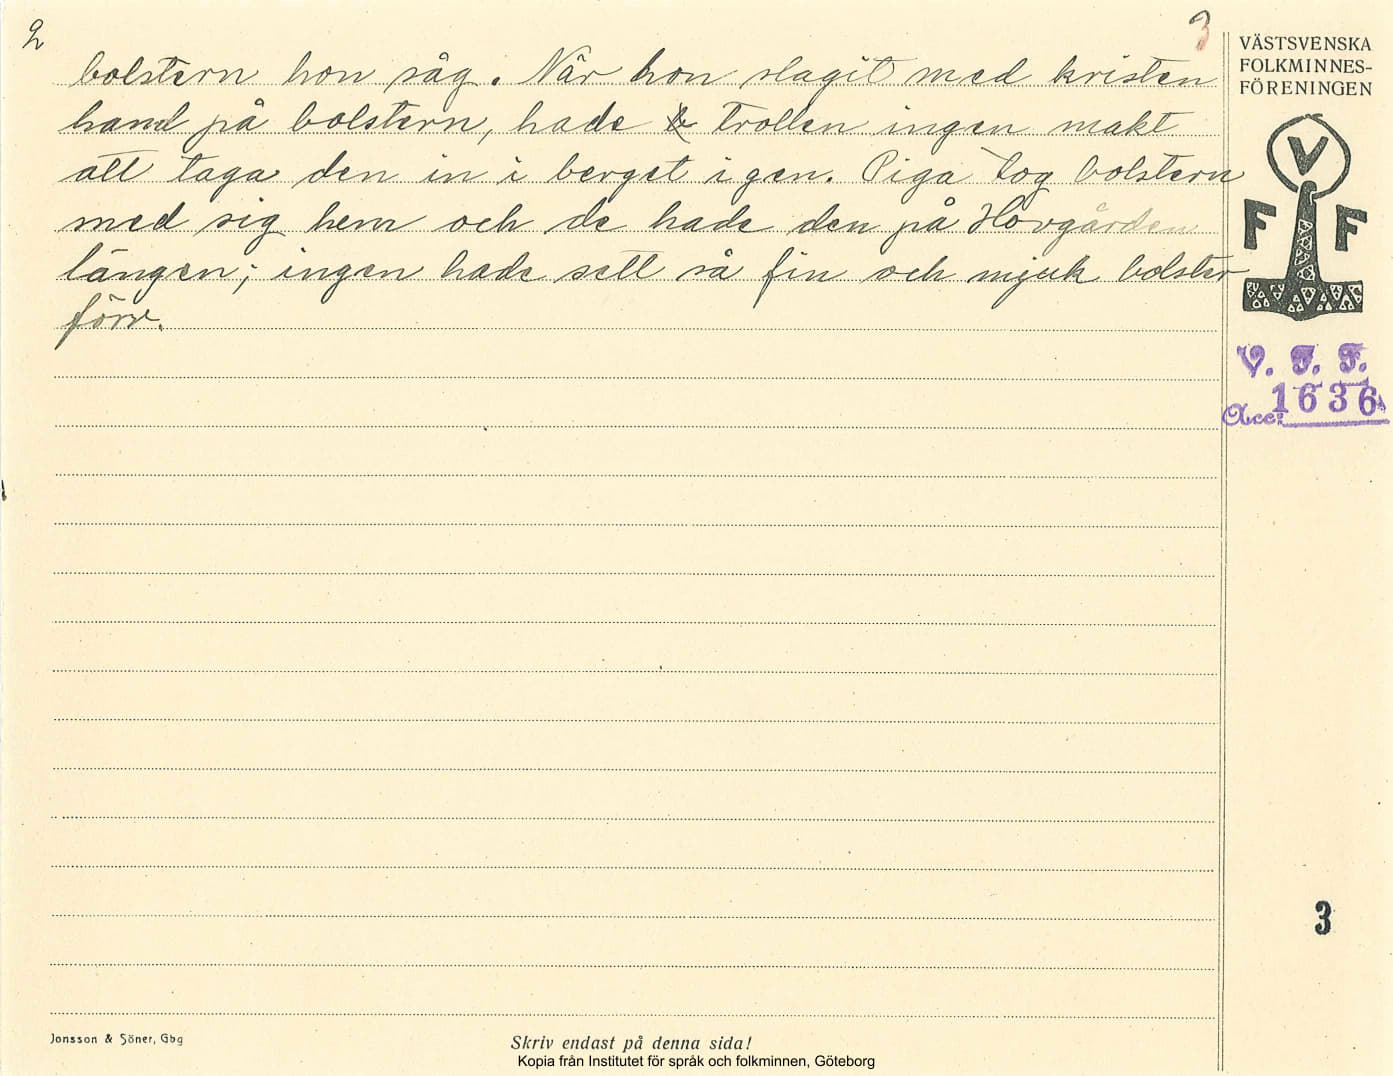 2
3
bolstern hon såg. När hon slagit med kristen
hand på bolstern, hade trollen ingen makt
att taga den in i berget igen. Piga tog bolstern
med sig hem och de hade den på Hovgården
längen; ingen hade sett så fin och mjuk bolster
förr.
VÄSTSVENSKA
FOLKMINNES-
FÖRENINGEN
V
F F
V. F. F.
Acc: 1636
3
Jonsson & Söner, Gbg
Skriv endast på denna sida!
Kopia från Institutet för språk och folkminnen, Göteborg